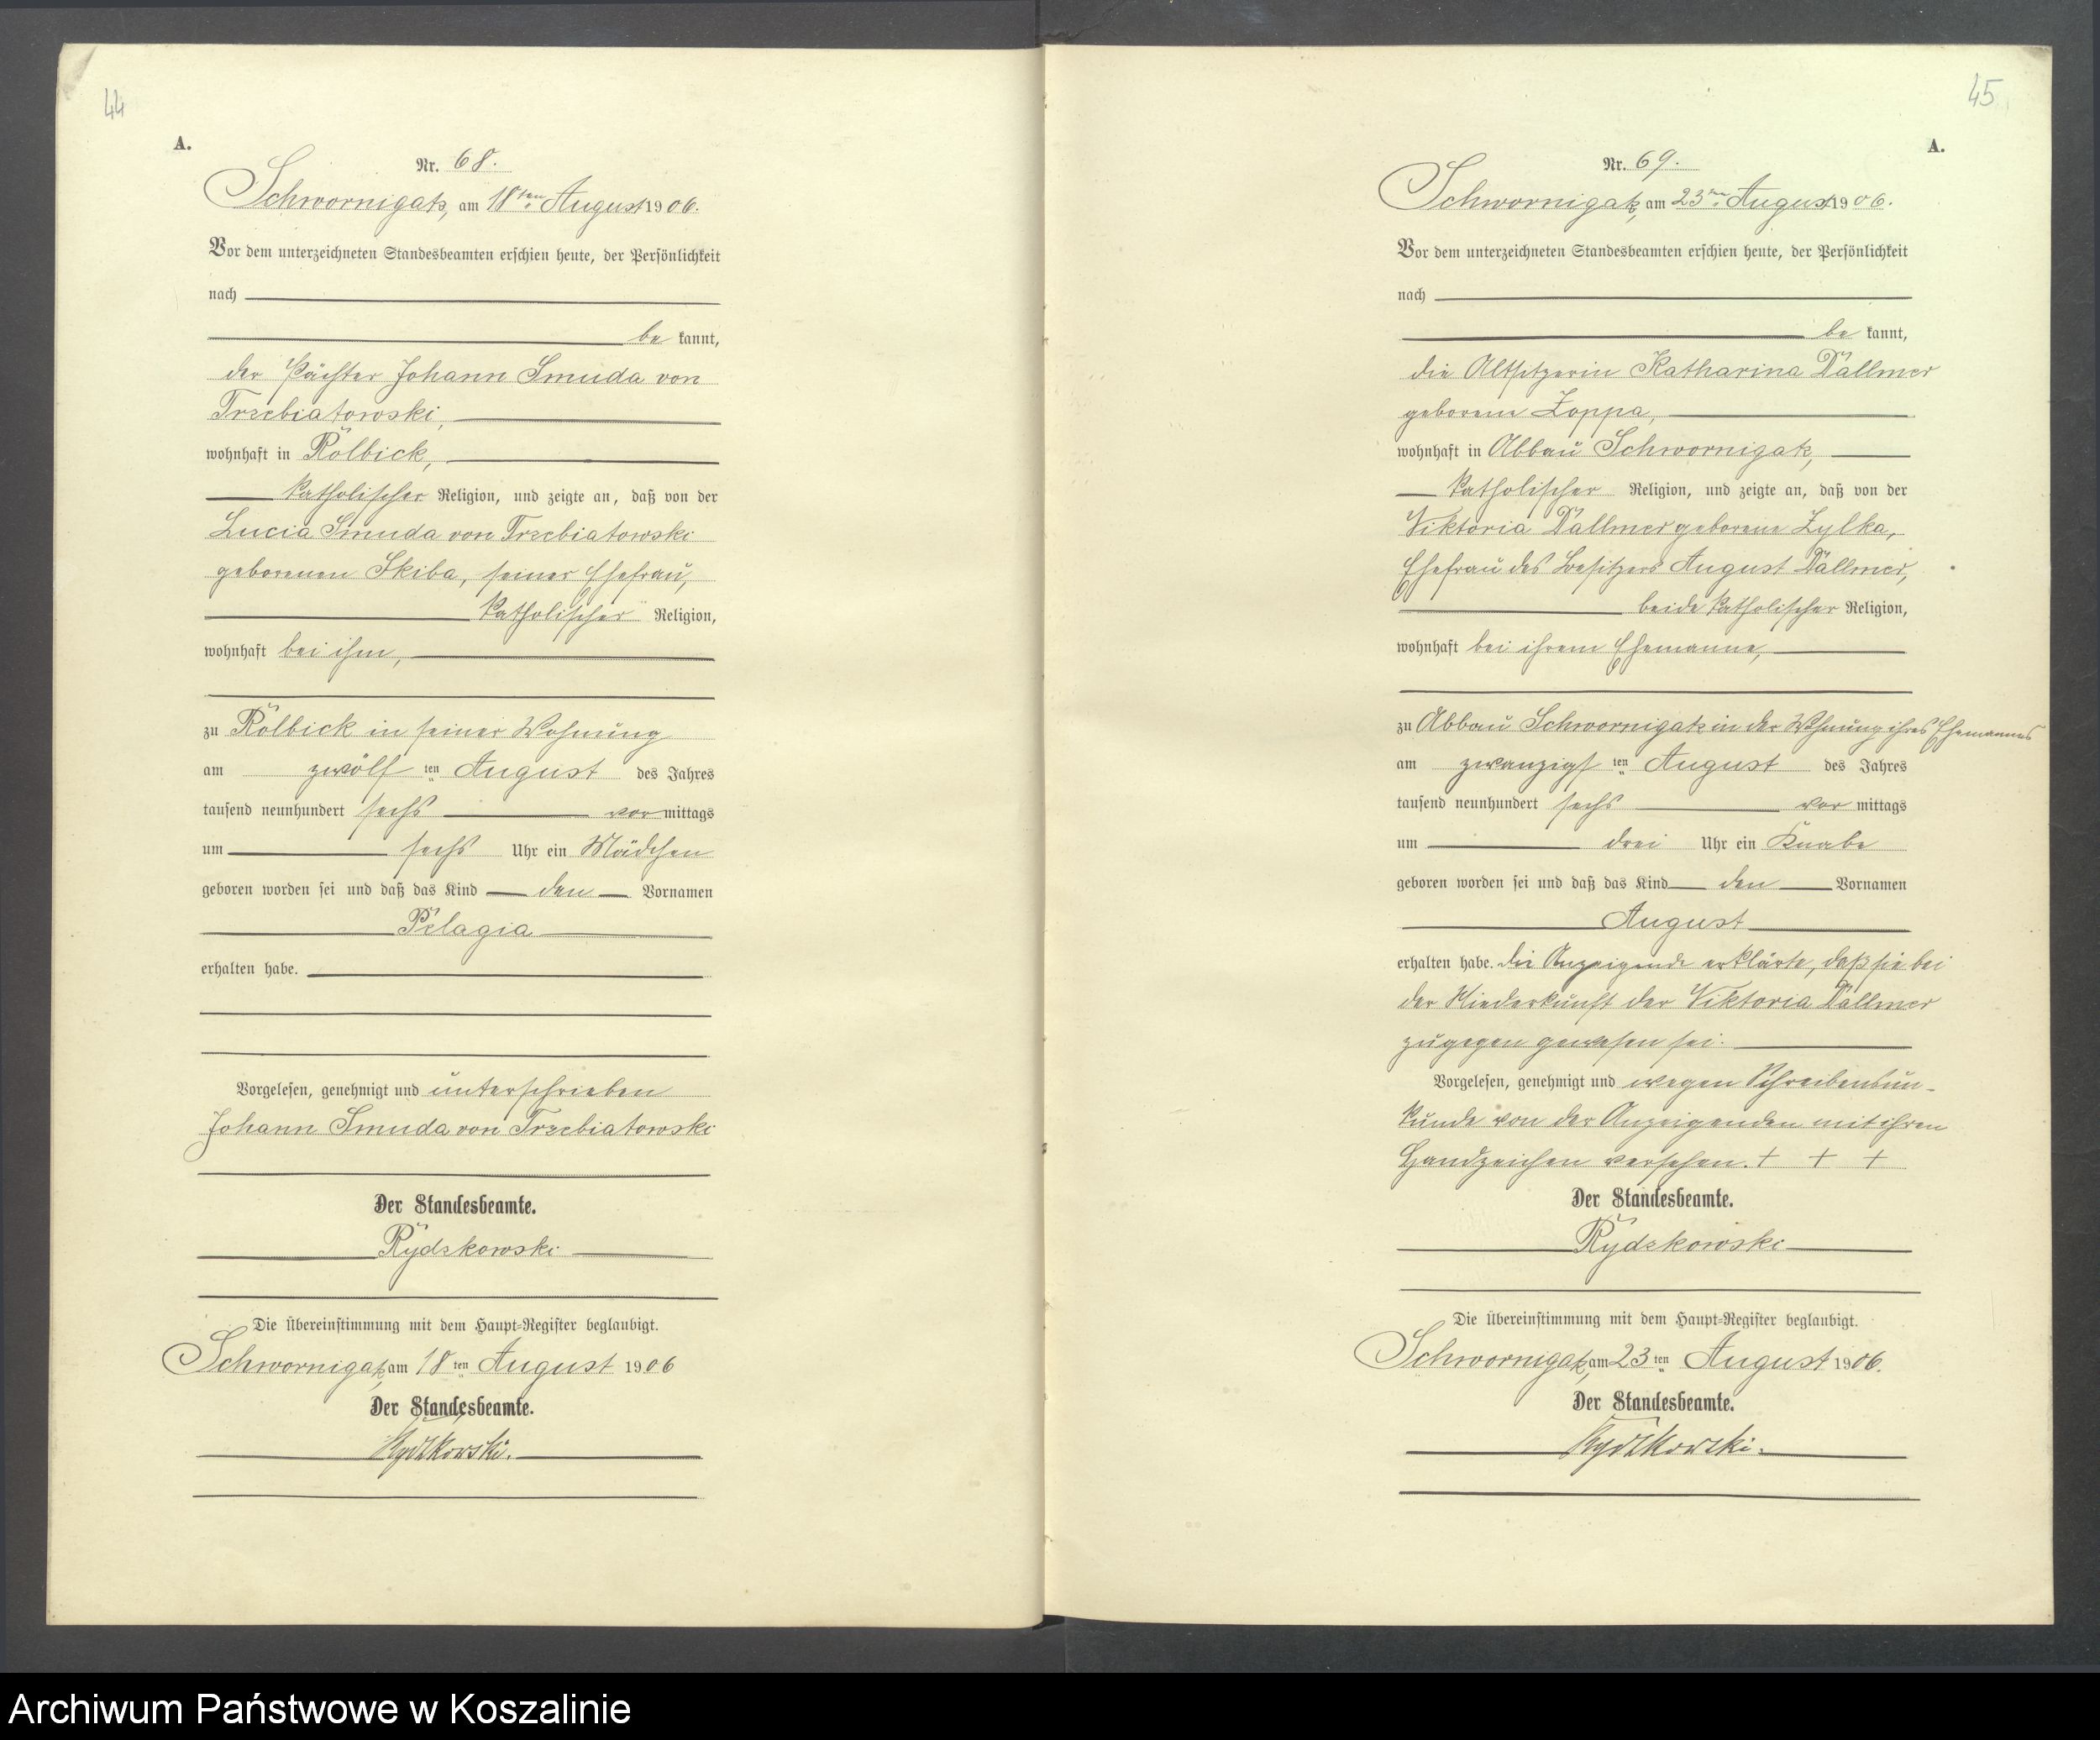 44
A.
Nr. 68.
Schwornigatz, am 18ten August 1906.
Vor dem unterzeichneten Standesbeamten erschien heute, der Persönlichkeit
nach
be kannt,
der Pächter Johann Smuda von
Trzebiatowski,
wohnhaft in Rölbick,
katholischer Religion, und zeigte an, daß von der
Lucia Smuda von Trzebiatowski
geborenen Skiba, seiner Ehefrau,
katholischer Religion,
wohnhaft bei ihm,
zu Rölbick in seiner Wohnung
am zwölf ten August des Jahres
tausend neunhundert sechs vor mittags
um sechs Uhr ein Mädchen
geboren worden sei und daß das Kind den Vornamen
Pelagia
erhalten habe.
Vorgelesen, genehmigt und unterschrieben
Johann Smuda von Trzebiatowski
Der Standesbeamte.
Rydzkowski
Die Übereinstimmung mit dem Haupt-Register beglaubigt.
Schwornigatz, am 18 ten August 1906
Der Standesbeamte.
Rydzkowski.
45
A.
Nr. 69.
Schwornigatz, am 23ten August 1906.
Vor dem unterzeichneten Standesbeamten erschien heute, der Persönlichkeit
nach
be kannt,
die Altsitzerin Katharina Dallmer
geborene Zoppa,
wohnhaft in Abbau Schwornigatz,
katholischer Religion, und zeigte an, daß von der
Viktoria Dallmer geborene Zylka,
Ehefrau des Besitzers August Dallmer,
beide katholischer Religion,
wohnhaft bei ihrem Ehemanne,
zu Abbau Schwornigatz in der Wohnung ihres Ehemannes
am zwanzigs ten August des Jahres
tausend neunhundert sechs vor mittags
um drei Uhr ein Knabe
geboren worden sei und daß das Kind den Vornamen
August
erhalten habe. Die Anzeigende erklärte, daß sie bei
der Niederkunft der Viktoria Dallmer
zugegen gewesen sei.
Vorgelesen, genehmigt und wegen Schreibensun-
kunde von der Anzeigenden mit ihren
Handzeichen versehen. + + +
Der Standesbeamte.
Rydzkowski
Die Übereinstimmung mit dem Haupt-Register beglaubigt.
Schwornigatz, am 23 ten August 1906.
Der Standesbeamte.
Rydzkowski.
Archiwum Państwowe w Koszalinie